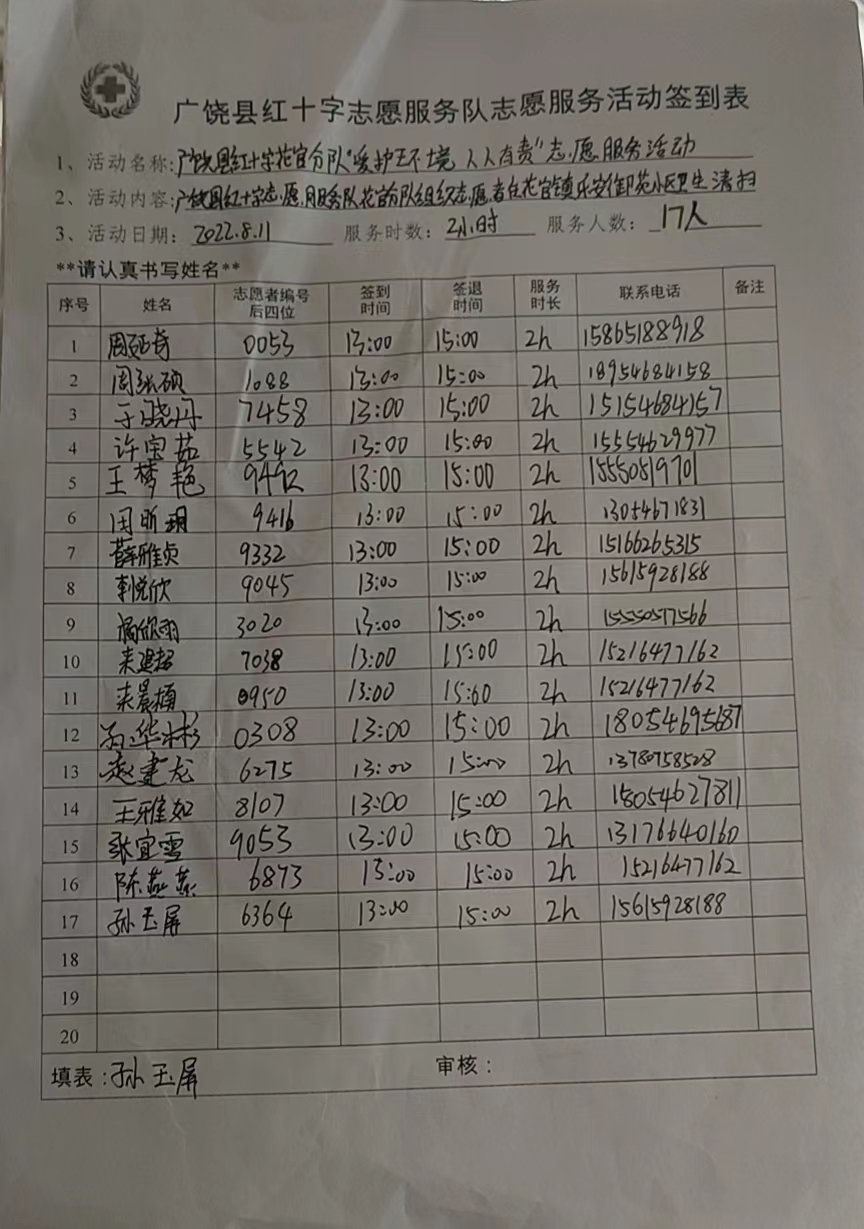 广饶县红十字志愿服务队志愿服务活动签到表
1、活动名称:广饶县红十字花官分队"爱护环境 人人有责"志愿服务活动
2、活动内容:广饶县红十字志愿服务队花官分队组织志愿者在花官镇乐安御苑小区卫生清扫
3、活动日期: 2022.8.11 服务时数: 2小时 服务人数: 17人
**请认真书写姓名**
序号 姓名 志愿者编号后四位 签到时间 签退时间 服务时长 联系电话 备注
1 周延奇 0053 13:00 15:00 2h 15865188918
2 周张硕 1088 13:00 15:00 2h 18954684158
3 于晓丹 7458 13:00 15:00 2h 15154684157
4 许宝茹 5542 13:00 15:00 2h 15554629977
5 王梦艳 9492 13:00 15:00 2h 15550819701
6 昕玥 9416 13:00 15:00 2h 13054671831
7 薛雅贞 9332 13:00 15:00 2h 15166265315
8 李悦欣 9045 13:00 15:00 2h 15615928188
9 欣雨 3020 13:00 15:00 2h 15550517566
10 7038 13:00 15:00 2h 15216477162
11 0950 13:00 15:00 2h 15216477162
12 华彬 0308 13:00 15:00 2h 18054695687
13 赵建龙 6275 13:00 15:00 2h 13780758528
14 王雅如 8107 13:00 15:00 2h 18054627811
15 张宜雪 9053 13:00 15:00 2h 13176640160
16 陈燕燕 6873 13:00 15:00 2h 15216477162
17 孙玉屏 6364 13:00 15:00 2h 15615928188
18
19
20
填表:孙玉屏 审核: